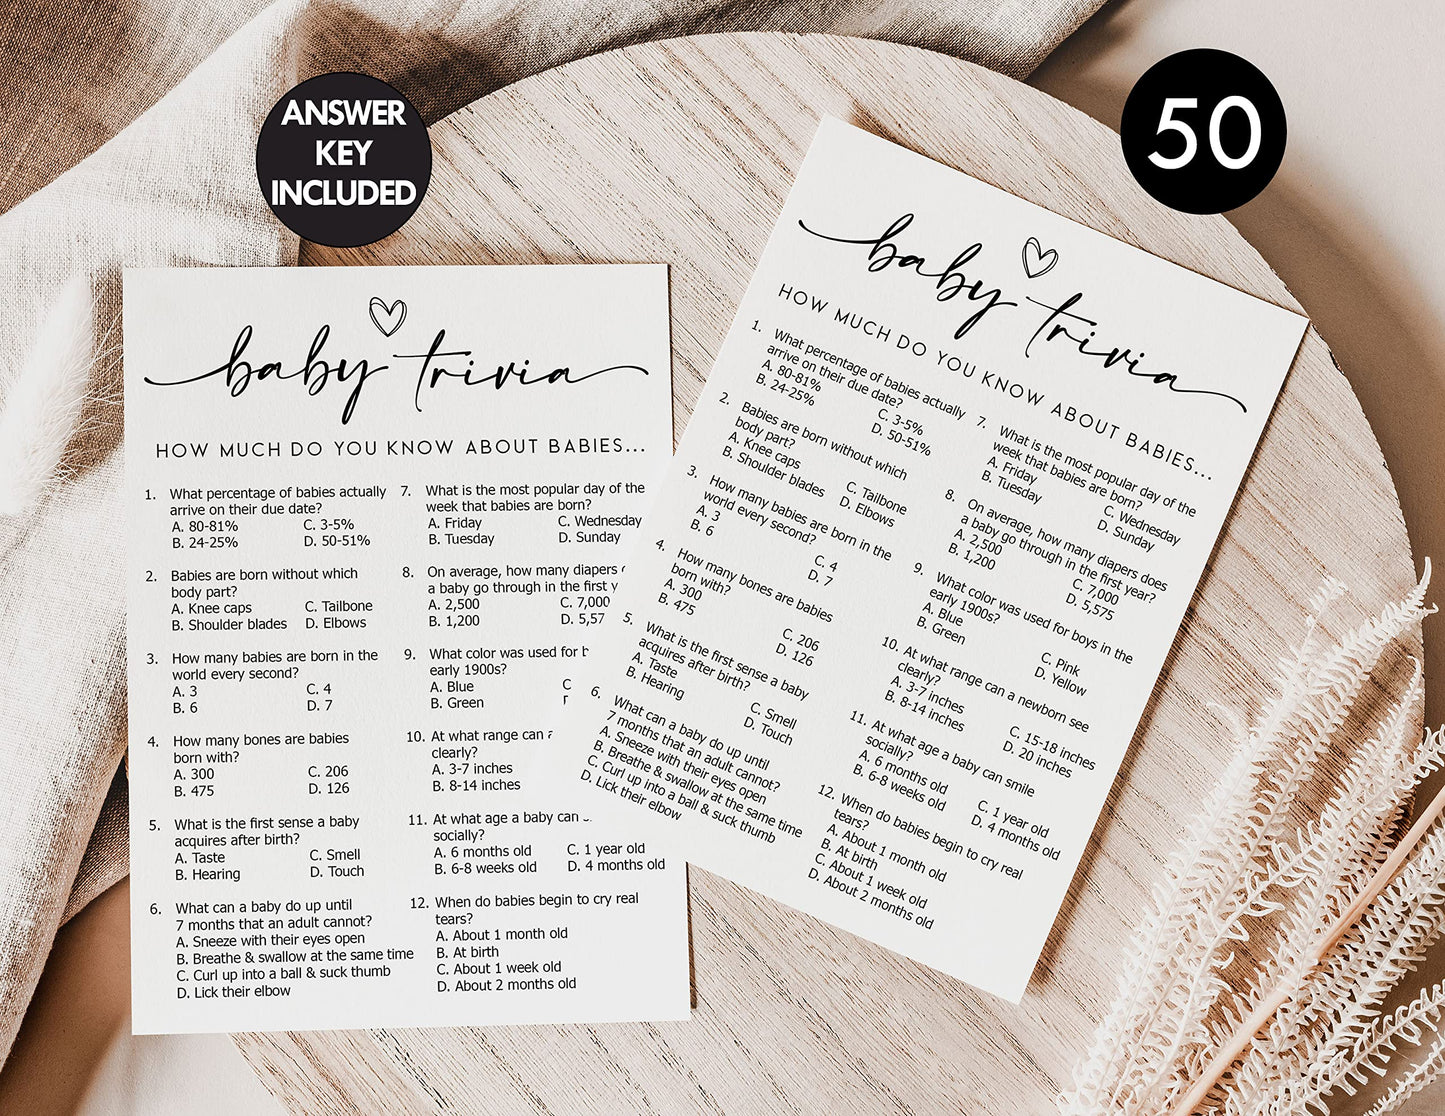 ANSWER
KEY
INCLUDED
50
baby trivia
HOW MUCH DO YOU KNOW ABOUT BABIES...
1. What percentage of babies actually
arrive on their due date?
A. 80-81% C. 3-5%
B. 24-25% D. 50-51%
2. Babies are born without which
body part?
A. Knee caps C. Tailbone
B. Shoulder blades D. Elbows
3. How many babies are born in the
world every second?
A. 3 C. 4
B. 6 D. 7
4. How many bones are babies
born with?
A. 300 C. 206
B. 475 D. 126
5. What is the first sense a baby
acquires after birth?
A. Taste C. Smell
B. Hearing D. Touch
6. What can a baby do up until
7 months that an adult cannot?
A. Sneeze with their eyes open
B. Breathe & swallow at the same time
C. Curl up into a ball & suck thumb
D. Lick their elbow
7. What is the most popular day of the
week that babies are born?
A. Friday C. Wednesday
B. Tuesday D. Sunday
8. On average, how many diapers
a baby go through in the first
A. 2,500 C. 7,000
B. 1,200 D. 5,57
9. What color was used for
early 1900s?
A. Blue C
B. Green
10. At what range can
clearly?
A. 3-7 inches
B. 8-14 inches
11. At what age a baby can
socially?
A. 6 months old C. 1 year old
B. 6-8 weeks old D. 4 months old
12. When do babies begin to cry real
tears?
A. About 1 month old
B. At birth
C. About 1 week old
D. About 2 months old
baby trivia
HOW MUCH DO YOU KNOW ABOUT BABIES...
1. What percentage of babies actually
arrive on their due date?
A. 80-81% C. 3-5%
B. 24-25% D. 50-51%
2. Babies are born without which
body part?
A. Knee caps C. Tailbone
B. Shoulder blades D. Elbows
3. How many babies are born in the
world every second?
A. 3 C. 4
B. 6 D. 7
4. How many bones are babies
born with?
A. 300 C. 206
B. 475 D. 126
5. What is the first sense a baby
acquires after birth?
A. Taste C. Smell
B. Hearing D. Touch
6. What can a baby do up until
7 months that an adult cannot?
A. Sneeze with their eyes open
B. Breathe & swallow at the same time
C. Curl up into a ball & suck thumb
D. Lick their elbow
7. What is the most popular day of the
week that babies are born?
A. Friday C. Wednesday
B. Tuesday D. Sunday
8. On average, how many diapers does
a baby go through in the first year?
A. 2,500 C. 7,000
B. 1,200 D. 5,575
9. What color was used for boys in the
early 1900s?
A. Blue C. Pink
B. Green D. Yellow
10. At what range can a newborn see
clearly?
A. 3-7 inches C. 15-18 inches
B. 8-14 inches D. 20 inches
11. At what age a baby can smile
socially?
A. 6 months old C. 1 year old
B. 6-8 weeks old D. 4 months old
12. When do babies begin to cry real
tears?
A. About 1 month old
B. At birth
C. About 1 week old
D. About 2 months old